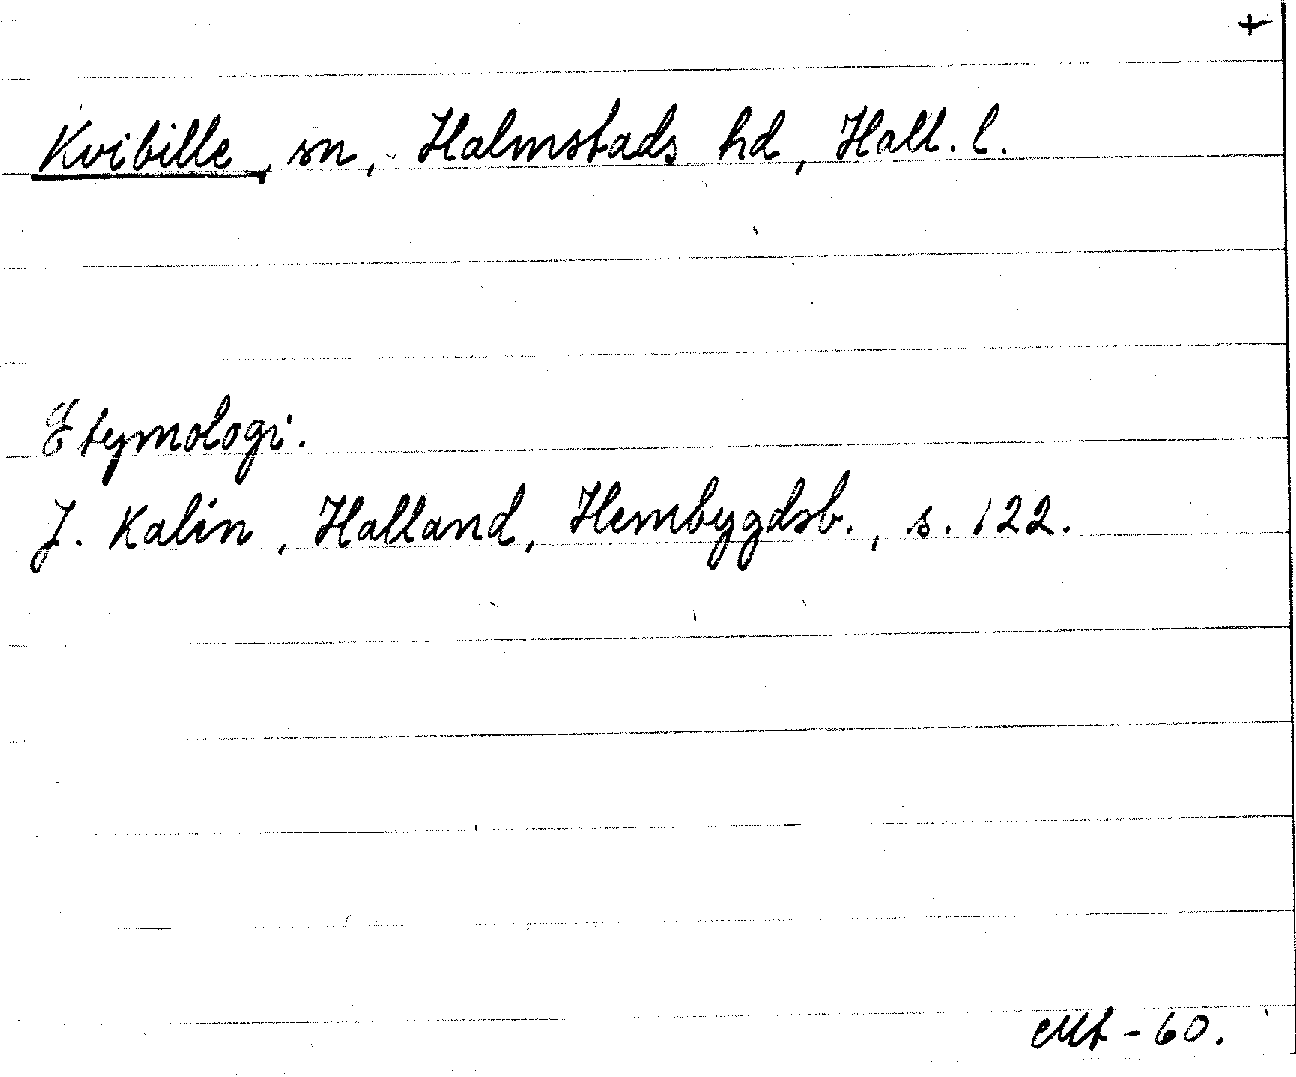 +
Kvibille, sn, Halmstads hd, Hall. l.
Etymologi.
J. Kalén, Halland, Hembygdsb., s. 122.
- 60.